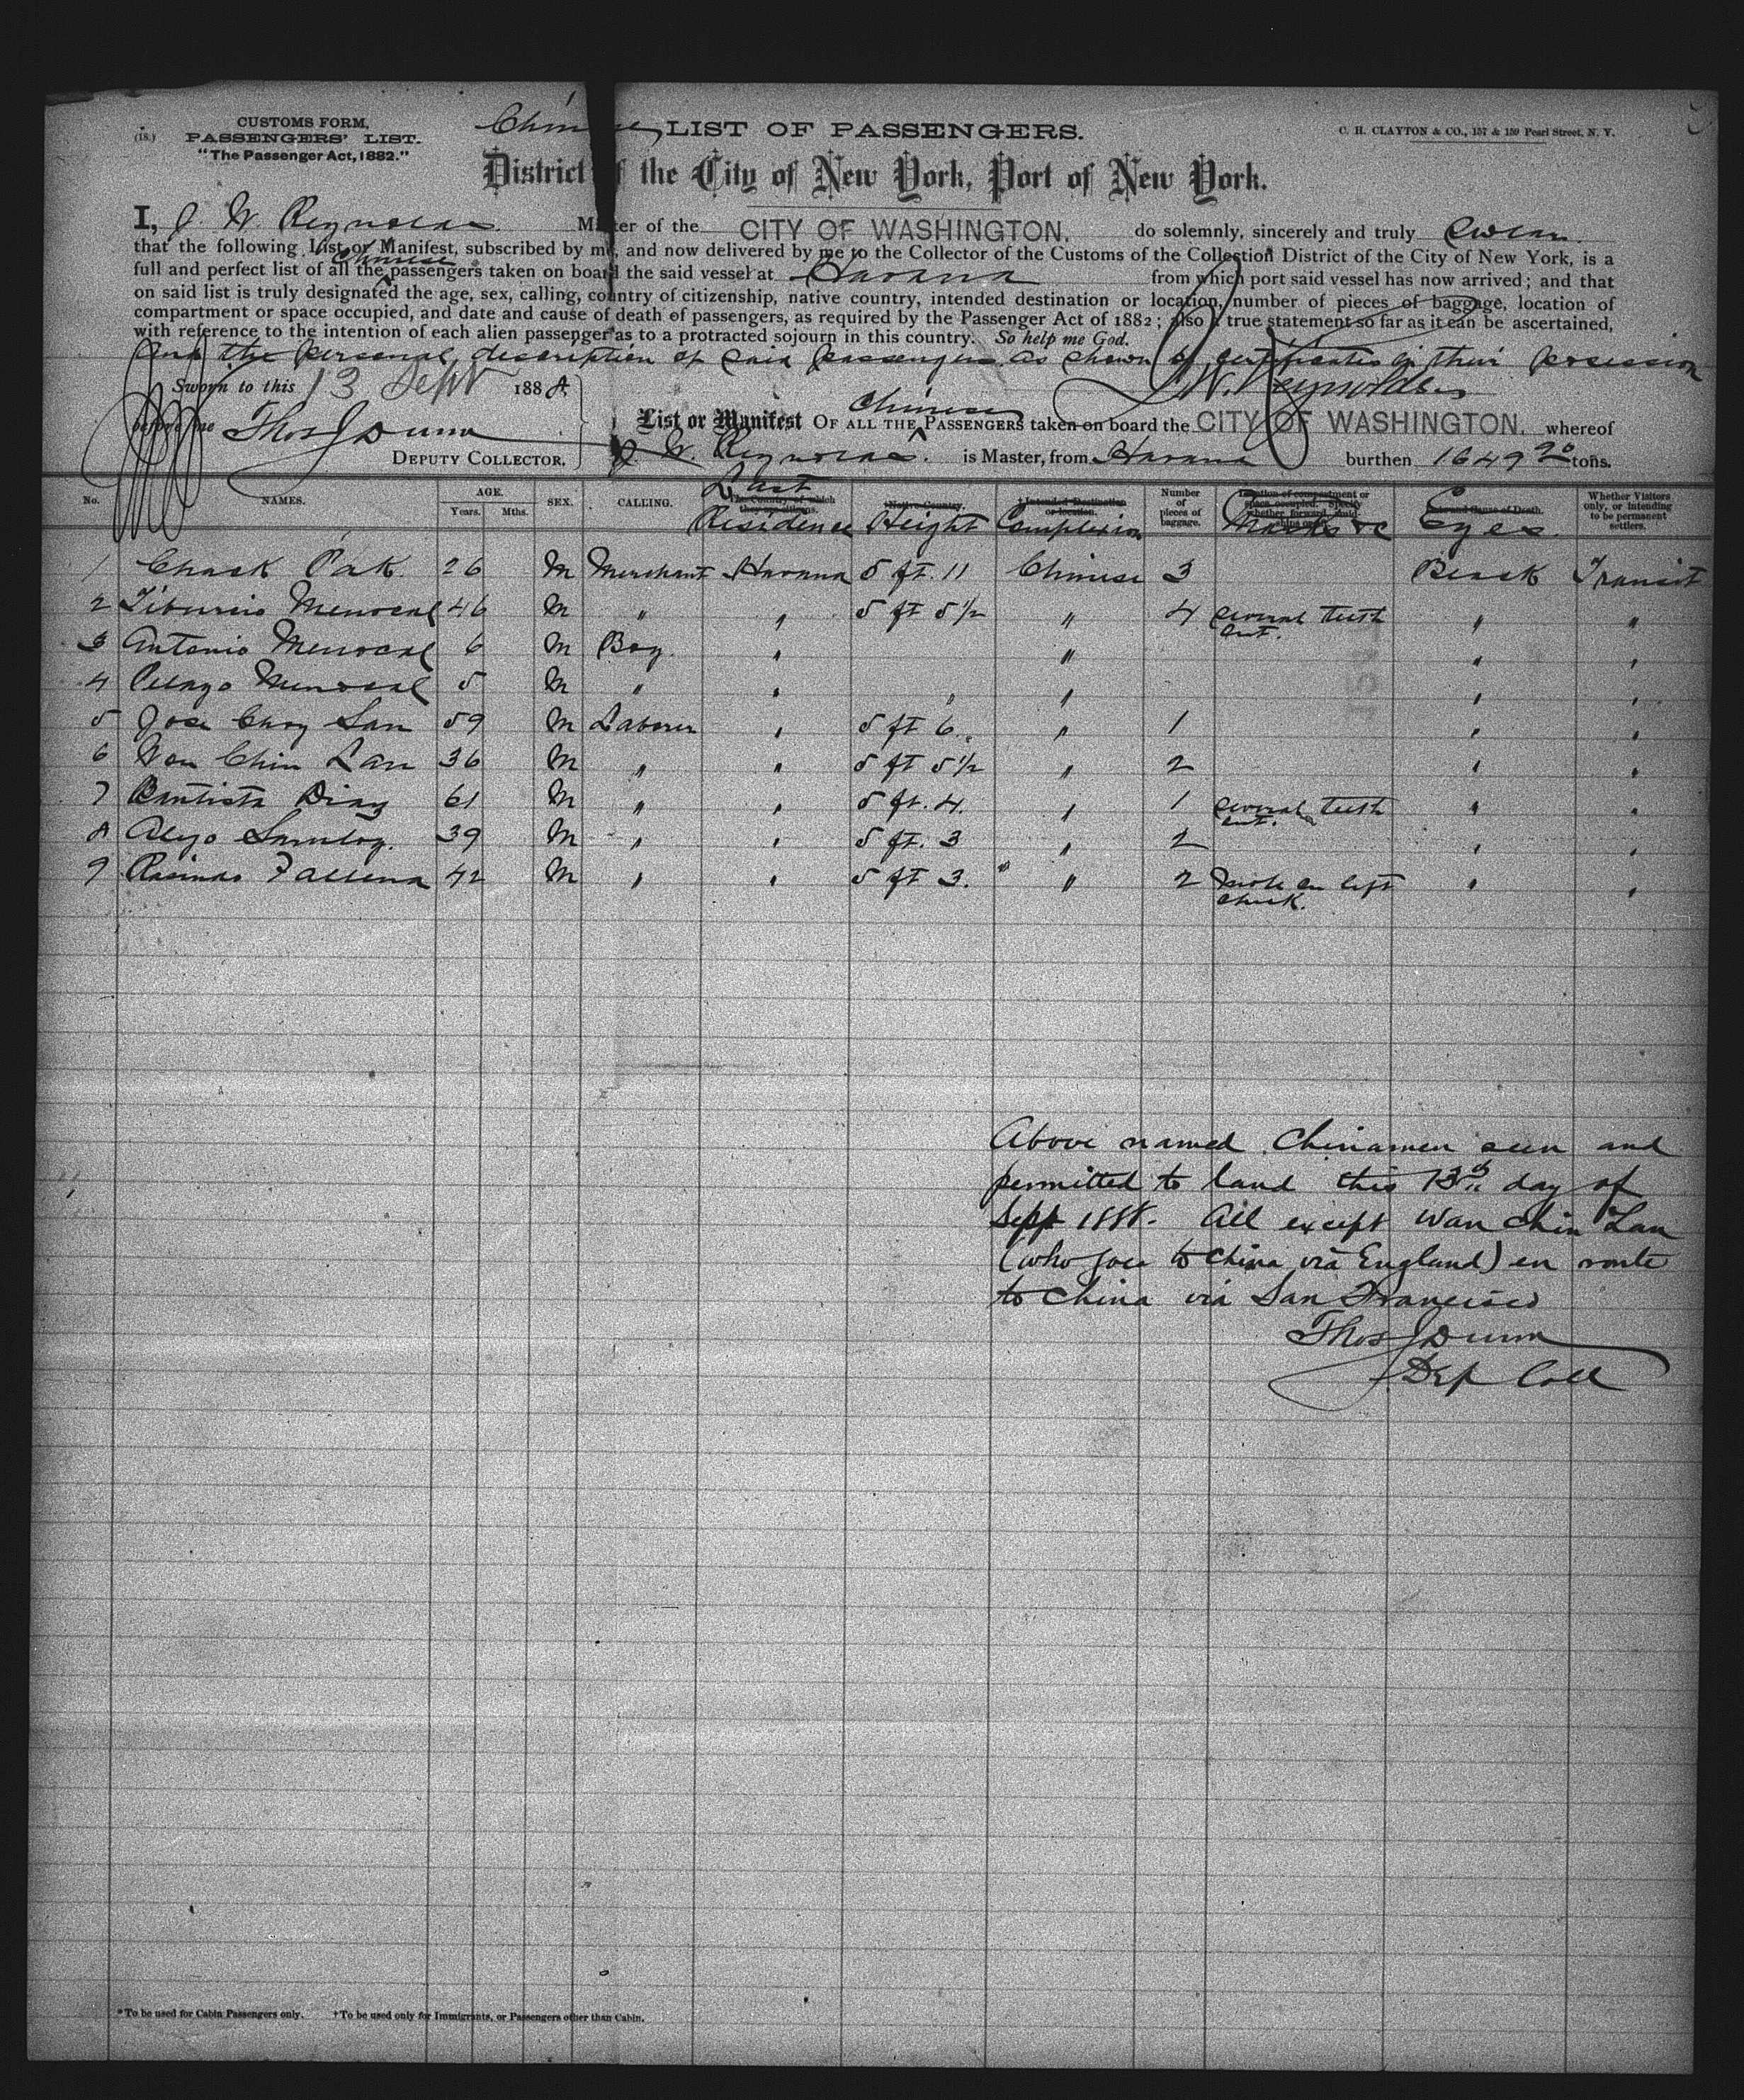 (18.)
CUSTOMS FORM,
PASSENGERS' LIST.
"The Passenger Act, 1882."
Chinese LIST OF PASSENGERS.
C. H. CLAYTON & CO., 157 & 159 Pearl Street, N. Y.
District of the City of New York, Port of New York.
I, J. W. Reynolds. Master of the CITY OF WASHINGTON. do solemnly, sincerely and truly swear
that the following List or Manifest, subscribed by me, and now delivered by me to the Collector of the Customs of the Collection District of the City of New York, is a
full and perfect list of all the Chinese passengers taken on board the said vessel at Havana from which port said vessel has now arrived; and that
on said list is truly designated the age, sex, calling, country of citizenship, native country, intended destination or location, number of pieces of baggage, location of
compartment or space occupied, and date and cause of death of passengers, as required by the Passenger Act of 1882; also a true statement so far as it can be ascertained,
with reference to the intention of each alien passenger as to a protracted sojourn in this country. So help me God.
And the personal description of said passengers as shown by certificates in their possession
Sworn to this 13 Sept 1888
J. W. Reynolds
before me Thos J Dunn
DEPUTY COLLECTOR.
List or Manifest OF ALL THE Chinese PASSENGERS taken on board the CITY OF WASHINGTON. whereof
J. W. Reynolds. is Master, from Havana burthen 1649 20 tons.
No. NAMES. AGE. Years. Mths. SEX. CALLING. Last Residence Height Complexion Number of pieces of baggage. Marks &c Eyes Whether Visitors only, or intending to be permanent settlers.
1 Chack Pak. 26 M Merchant Havana 5 ft. 11 Chinese 3 Black Transit
2 Tiburcio Menocal 46 M " " 5 ft 5 1/2 " 4 several teeth out. " "
3 Antonio Menocal 6 M Boy " " " "
4 Menocal 5 M " " " " " "
5 Jose Choy San 59 M Laborer " 5 ft 6. " 1 " "
6 Wan Chin Lan 36 M " " 5 ft 5 1/2 " 2 " "
7 Bautista Diaz 61 M " " 5 ft. 4. " 1 several teeth out. " "
8 Alejo 39 M " " 5 ft. 3 " 2 " "
9 42 M " " 5 ft 3. " 2 mole on left cheek. " "
Above named Chinamen seen and
permitted to land this 13th day of
Sept 1888. All except Wan Chin Lan
(who goes to China via England) en route
to China via San Francisco
Thos J Dunn
Dep Coll
*To be used for Cabin Passengers only. †To be used only for Immigrants, or Passengers other than Cabin.